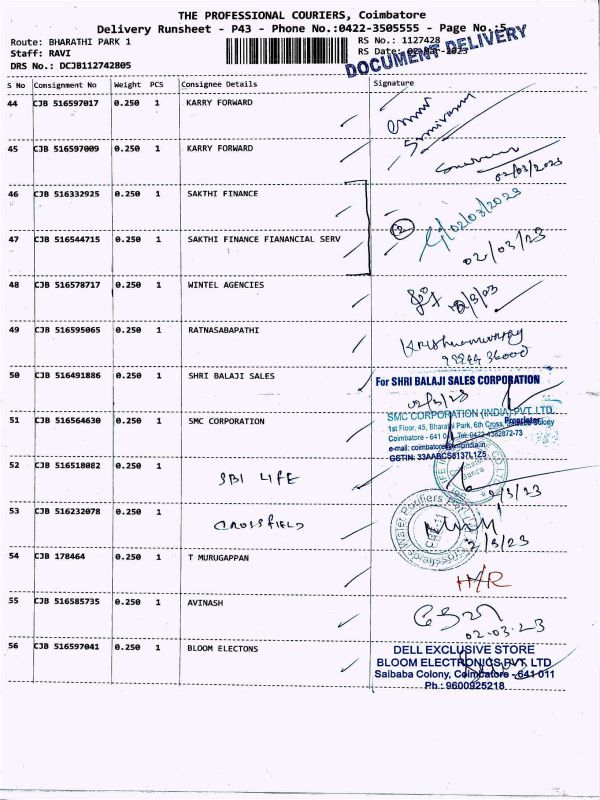 THE PROFESSIONAL COURIERS, Coimbatore
Delivery Runsheet - P43 - Phone No.:0422-3505555 - Page No.:5
Route: BHARATHI PARK 1
RS No.: 1127428
Staff: RAVI
RS Date: 02-Mar-2023
DRS No.: DCJB112742805
DOCUMENT DELIVERY
S No Consignment No Weight PCS Consignee Details Signature
44 CJB 516597017 0.250 1 KARRY FORWARD
45 CJB 516597009 0.250 1 KARRY FORWARD
02/03/2023
46 CJB 516332925 0.250 1 SAKTHI FINANCE
2 02/03/2023
47 CJB 516544715 0.250 1 SAKTHI FINANCE FIANANCIAL SERV
02/03/23
48 CJB 516578717 0.250 1 WINTEL AGENCIES
49 CJB 516595065 0.250 1 RATNASABAPATHI
Krishnamurthy
50 CJB 516491886 0.250 1 SHRI BALAJI SALES
For SHRI BALAJI SALES CORPORATION
Proprietor
51 CJB 516564630 0.250 1 SMC CORPORATION
SMC CORPORATION (INDIA) PVT. LTD.
1st Floor, 45, Bharathi Park, 6th Cross,
Coimbatore - 641 0 Tel: 0422-4382872-73
GSTIN: 33AABCS6137L1Z5
52 CJB 516518082 0.250 1 SBI LIFE
2/3/23
53 CJB 516232078 0.250 1 CROSSFIELD
Water Purifiers
2/3/23
54 CJB 178464 0.250 1 T MURUGAPPAN
H/R
55 CJB 516585735 0.250 1 AVINASH
02-03-23
56 CJB 516597041 0.250 1 BLOOM ELECTONS
DELL EXCLUSIVE STORE
BLOOM ELECTRONICS PVT. LTD
Saibaba Colony, Coimbatore - 641 011
Ph : 9600925218